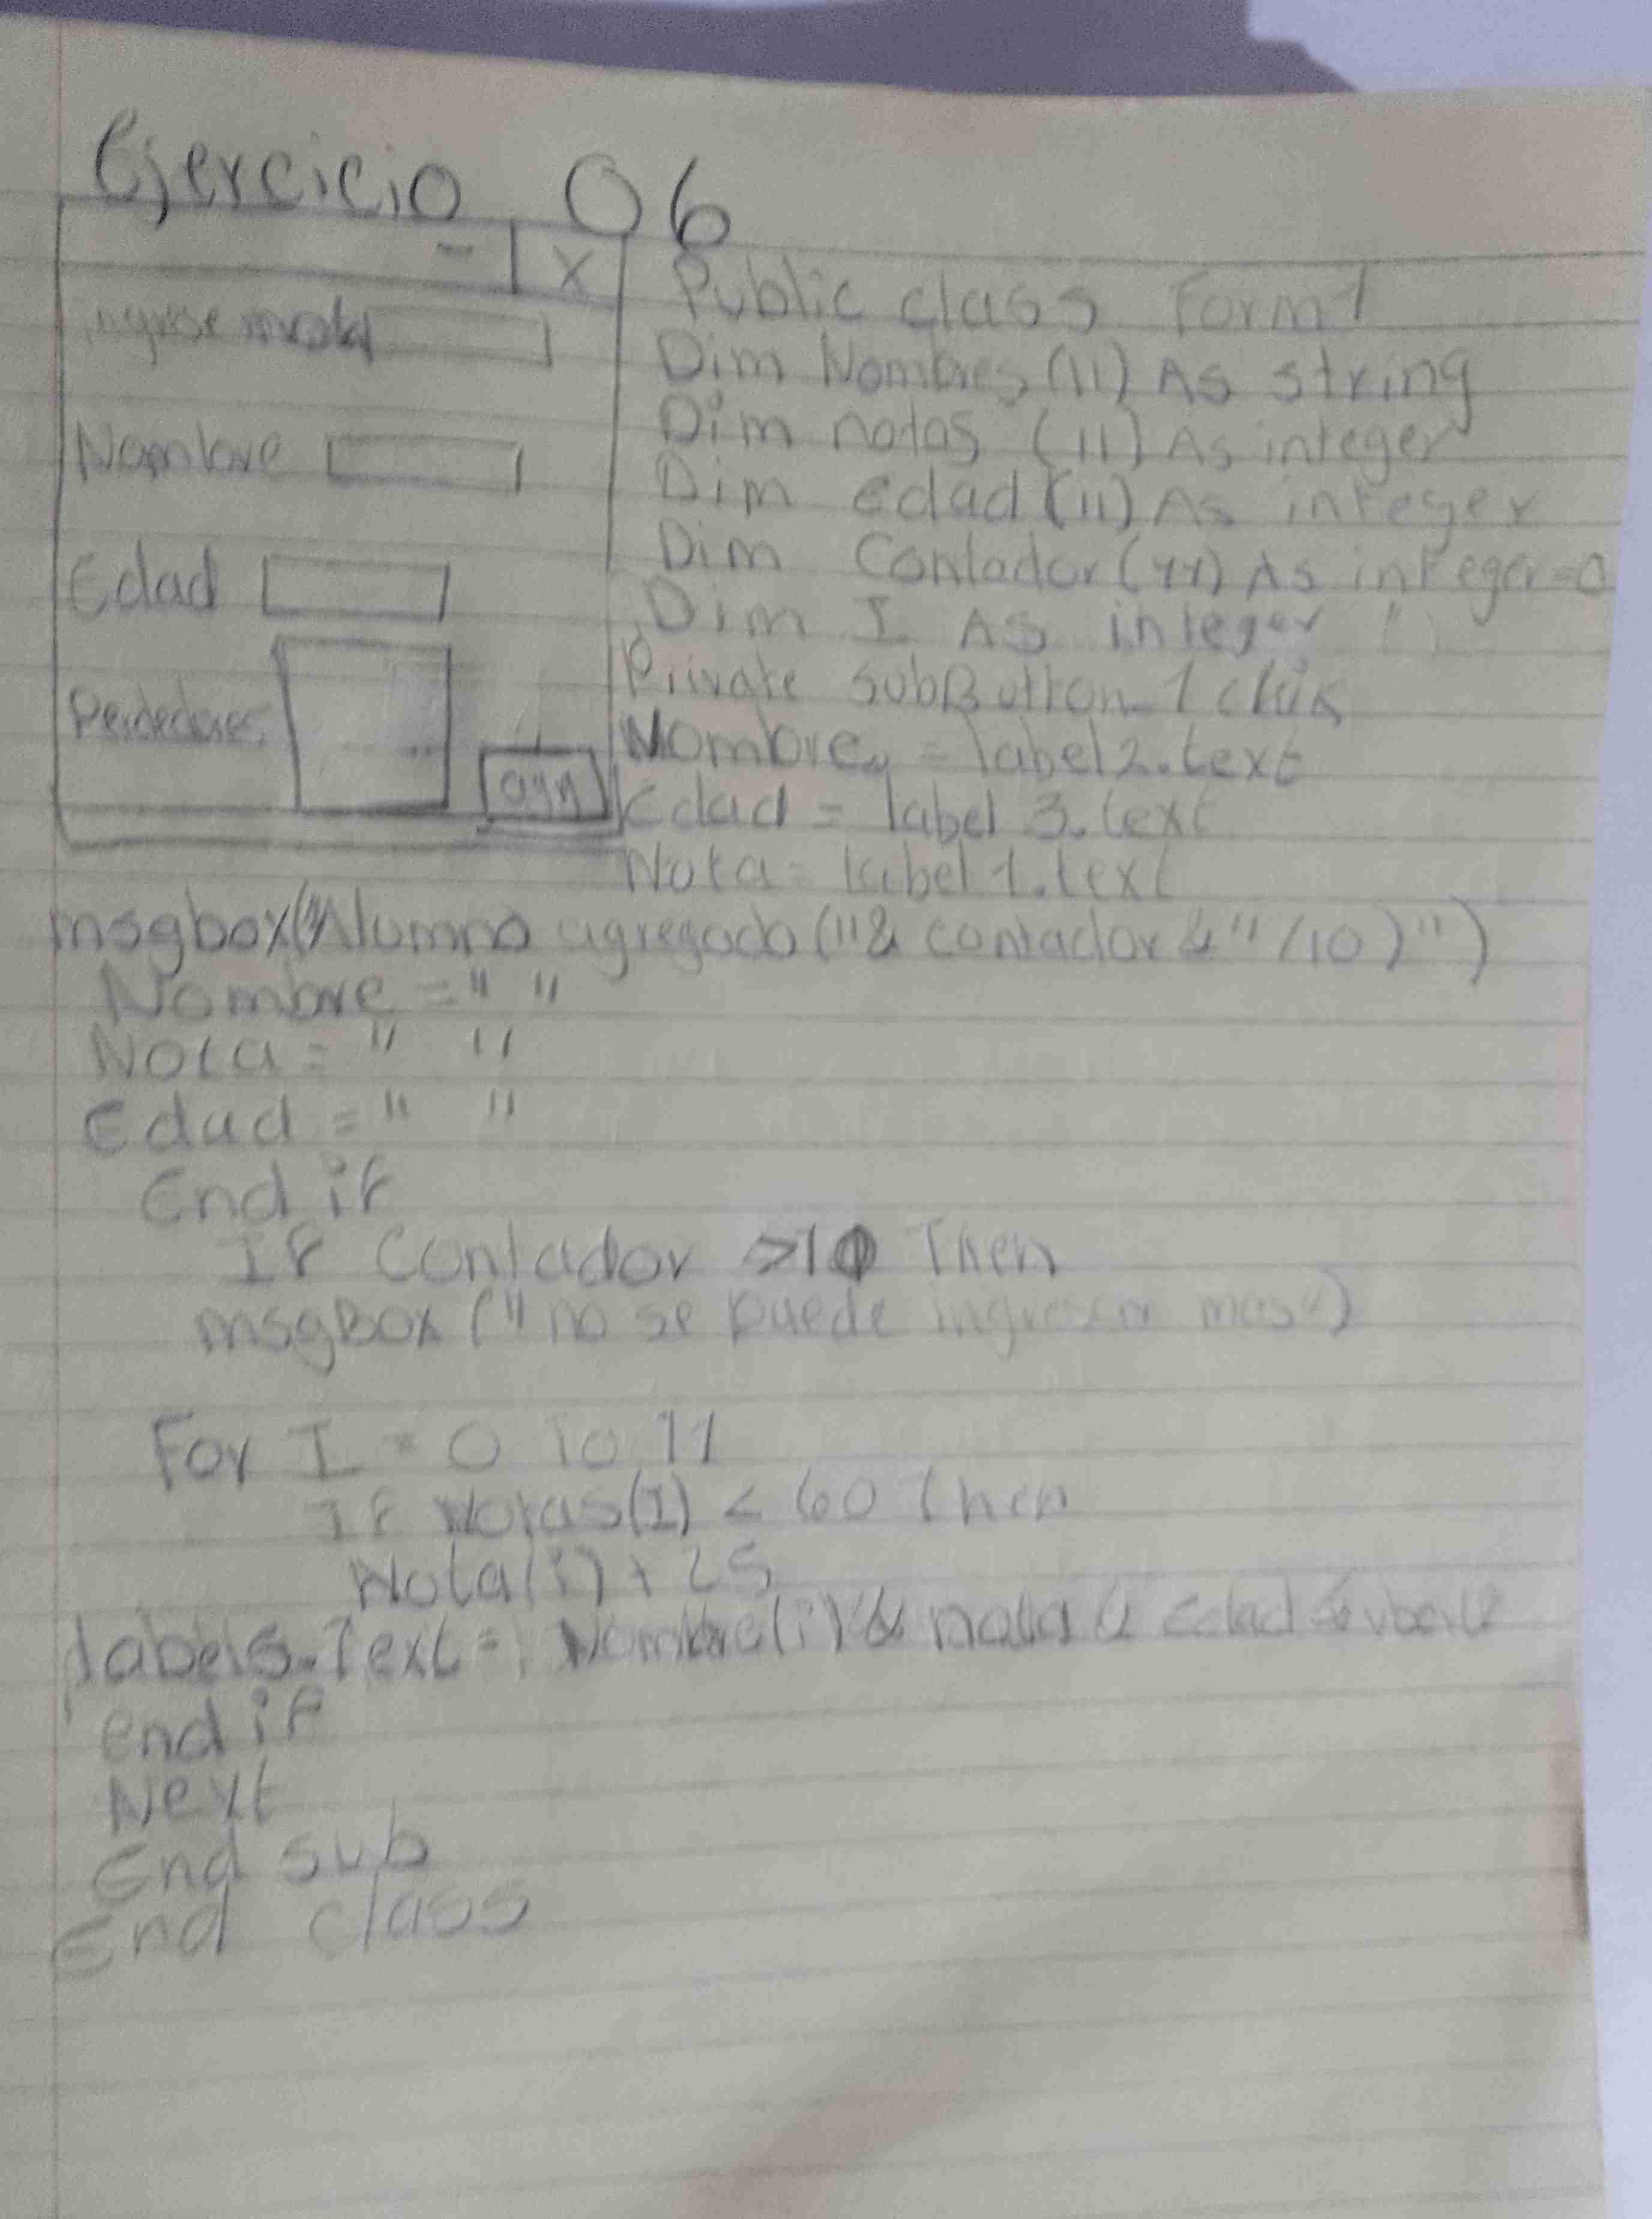 Ejercicio 06
- | X
ingrese nota
Nombre
Edad
Perdedores
Public class Form1
Dim Nombres (11) As string
Dim notas (11) As integer
Dim edad (11) As integer
Dim Contador (11) As integer=0
Dim I As integer
Private subButton_1 click
Nombre = label2.text
Edad = label 3.text
Nota = label 1.text
msgbox("Alumno agregado ("& contador &" /10)")
Nombre = " "
Nota = " "
Edad = " "
End if
IF Contador >10 Then
msgBox ("no se puede ingresar mas")
For I = 0 To 11
IF Notas(I) < 60 then
Nota(i) + 25
label5.Text = Nombre(i) & nota & edad &
end if
Next
End sub
End class